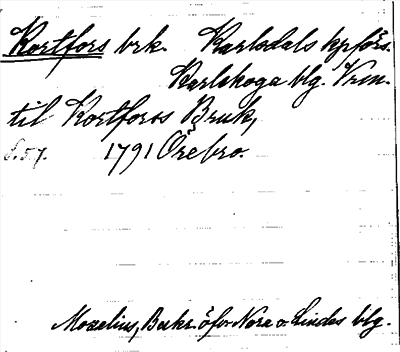 Kortfors brk. Karlsdals kpförs.
Karlskoga blg. Vrm.
til Kortforss Bruk,
S. 57. 1791 Örebro.
Moxelius, Beskr. öfver Nora o. Lindes blg.